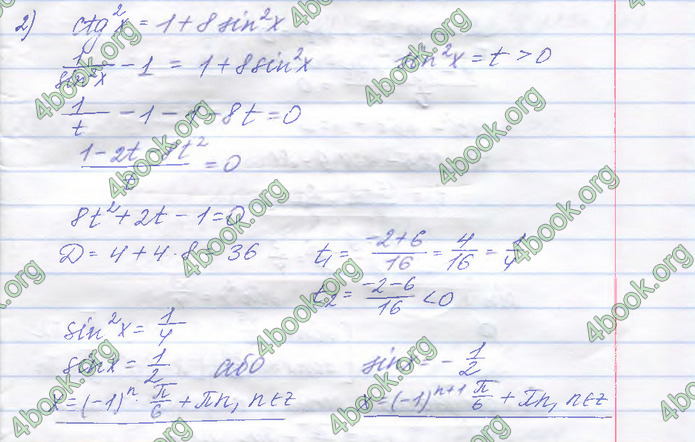 2) ctg²x = 1 + 8 sin²x
1/sin²x - 1 = 1 + 8 sin²x   sin²x = t > 0
1/t - 1 - 1 - 8t = 0
(1 - 2t - 8t²)/t = 0
8t² + 2t - 1 = 0
D = 4 + 4·8 = 36   t₁ = (-2+6)/16 = 4/16 = 1/4
t₂ = (-2-6)/16 < 0
sin²x = 1/4
sin x = 1/2   або   sin x = - 1/2
x = (-1)ⁿ · π/6 + πn, n∈z   x = (-1)ⁿ⁺¹ π/6 + πn, n∈z
4book.org